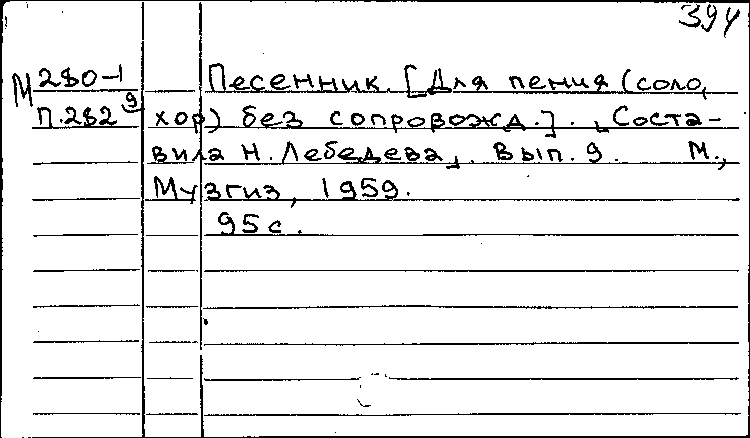 394
М 280-1 Песенник. [Для пения (соло,
П.282 9 хор) без сопровожд.]. „Соста-
вила Н. Лебедева„. Вып. 9. М.,
Музгиз, 1959.
95 с.